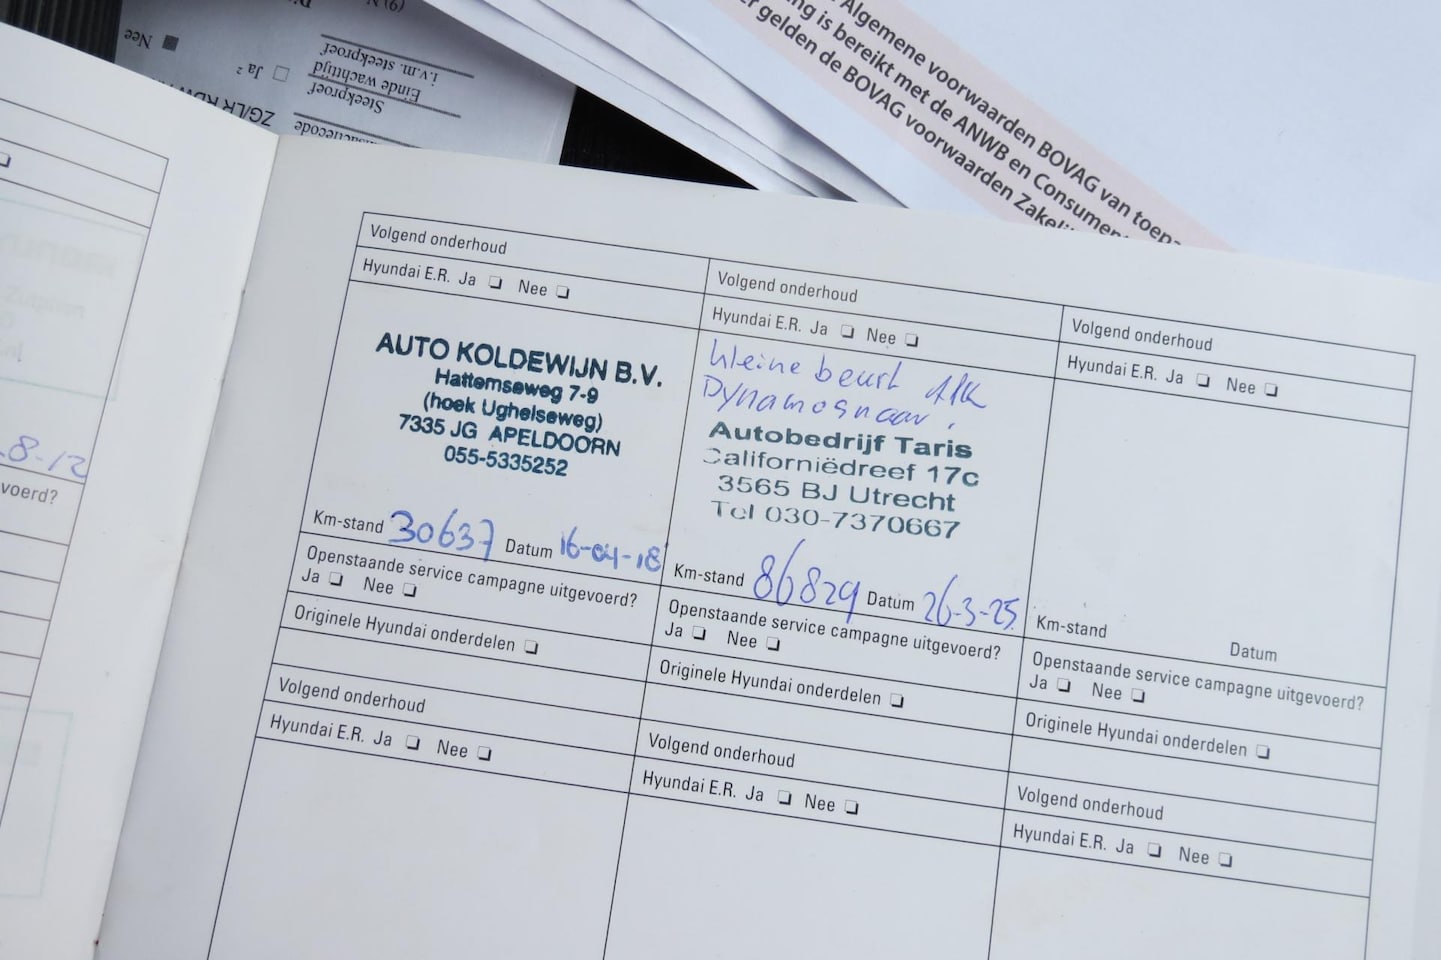 Nee
Ja ²
ZG/LR RDW
(9) N
i.v.m. steekproef
Einde wachttijd
Steekproef
Algemene voorwaarden BOVAG van toep
ng is bereikt met de ANWB en Consumen
r gelden de BOVAG voorwaarden Zakeli
8-12
voerd?
Volgend onderhoud
Hyundai E.R. Ja Nee
AUTO KOLDEWIJN B.V.
Hattemseweg 7-9
(hoek Ughelseweg)
7335 JG APELDOORN
055-5335252
Km-stand 30637 Datum 16-04-18
Openstaande service campagne uitgevoerd?
Ja Nee
Originele Hyundai onderdelen
Volgend onderhoud
Hyundai E.R. Ja Nee
Volgend onderhoud
Hyundai E.R. Ja Nee
kleine beurt APK
Dynamosnaar.
Autobedrijf Taris
Californiëdreef 17c
3565 BJ Utrecht
Tel 030-7370667
Km-stand 86829 Datum 26-3-25
Openstaande service campagne uitgevoerd?
Ja Nee
Originele Hyundai onderdelen
Volgend onderhoud
Hyundai E.R. Ja Nee
Volgend onderhoud
Hyundai E.R. Ja Nee
Km-stand Datum
Openstaande service campagne uitgevoerd?
Ja Nee
Originele Hyundai onderdelen
Volgend onderhoud
Hyundai E.R. Ja Nee